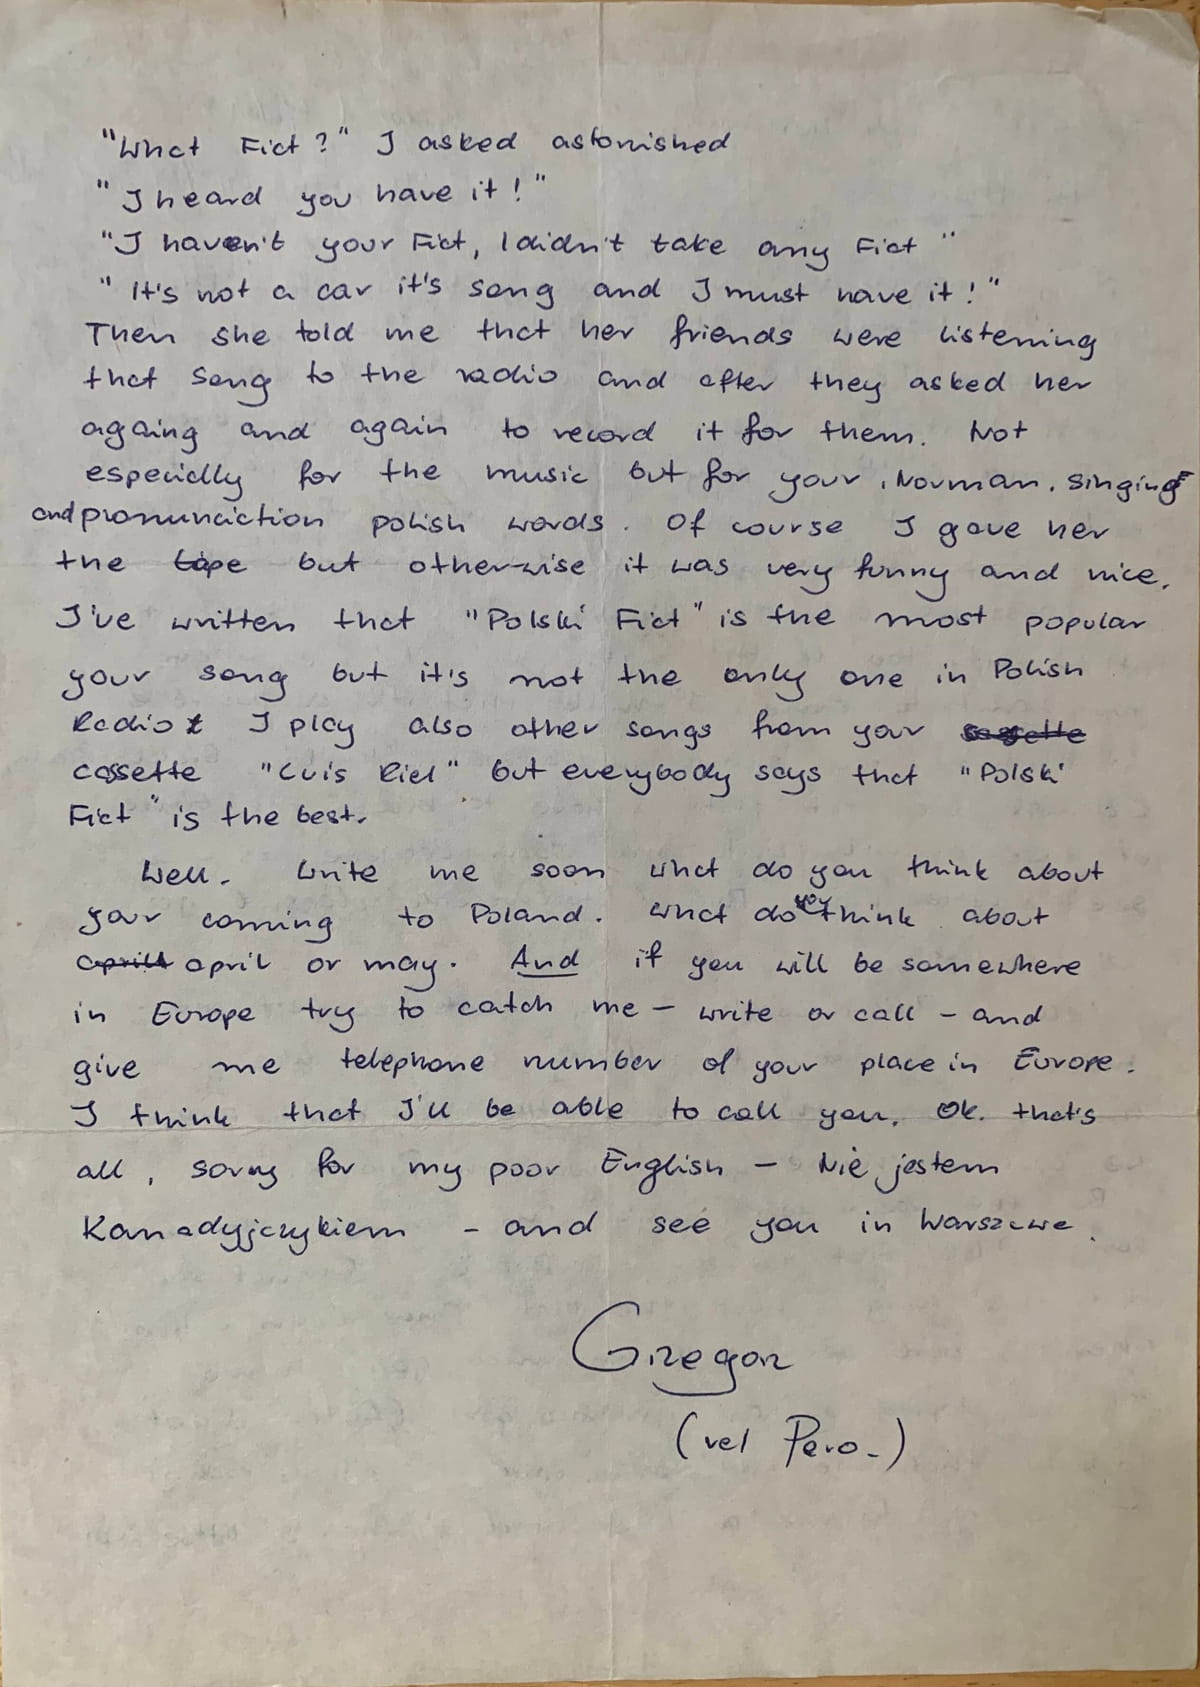 "What Fiat?" I asked astonished
"I heard you have it!"
"I haven't your Fiat, I didn't take any Fiat"
"It's not a car it's song and I must have it!"
Then she told me that her friends were listening
that song to the radio and after they asked her
againg and again to record it for them. Not
especially for the music but for your, Norman, singing
and pronunciation polish words. Of course I gave her
the tape but otherwise it was very funny and nice.
I've written that "Polski Fiat" is the most popular
your song but it's not the only one in Polish
Radio I play also other songs from your
cassette "Luis Riel" but everybody says that "Polski
Fiat" is the best.
Well. Write me soon what do you think about
your coming to Poland. What do you think about
aprill april or may. And if you will be somewhere
in Europe try to catch me - write or call - and
give me telephone number of your place in Europe.
I think that I'll be able to call you. Ok. that's
all, sorry for my poor English - Nie jestem
Kanadyjczykiem - and see you in Warszawa.
Grzegorz
(vel Pero-)